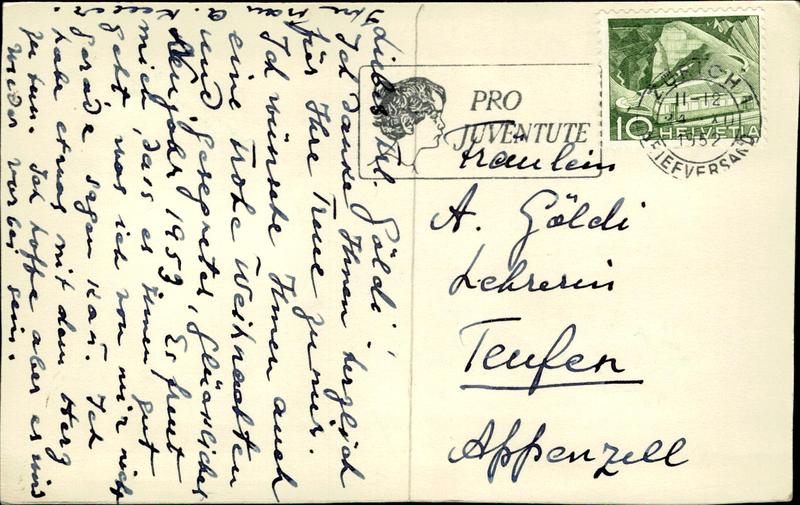 Liebes Frl. Göldi!
Ich danke Ihnen herzlich
für Ihre Treue zu mir.
Ich wünsche Ihnen auch
eine frohe Weihnachten
und gesegnetes, glückliches
Neujahr 1953. Es freut
mich, dass es Ihnen gut
geht, was ich von mir nicht
gerade sagen kan. Ich
habe etwas mit dem Herz
zu tun. Ich hoffe aber es wird
wieder vorbei sein.
PRO
JUVENTUTE
ZÜRICH 1
11-12
XII
1952
BRIEFVERSAND
10 HELVETIA
Fräulein
A. Göldi
Lehrerin
Teufen
Appenzell